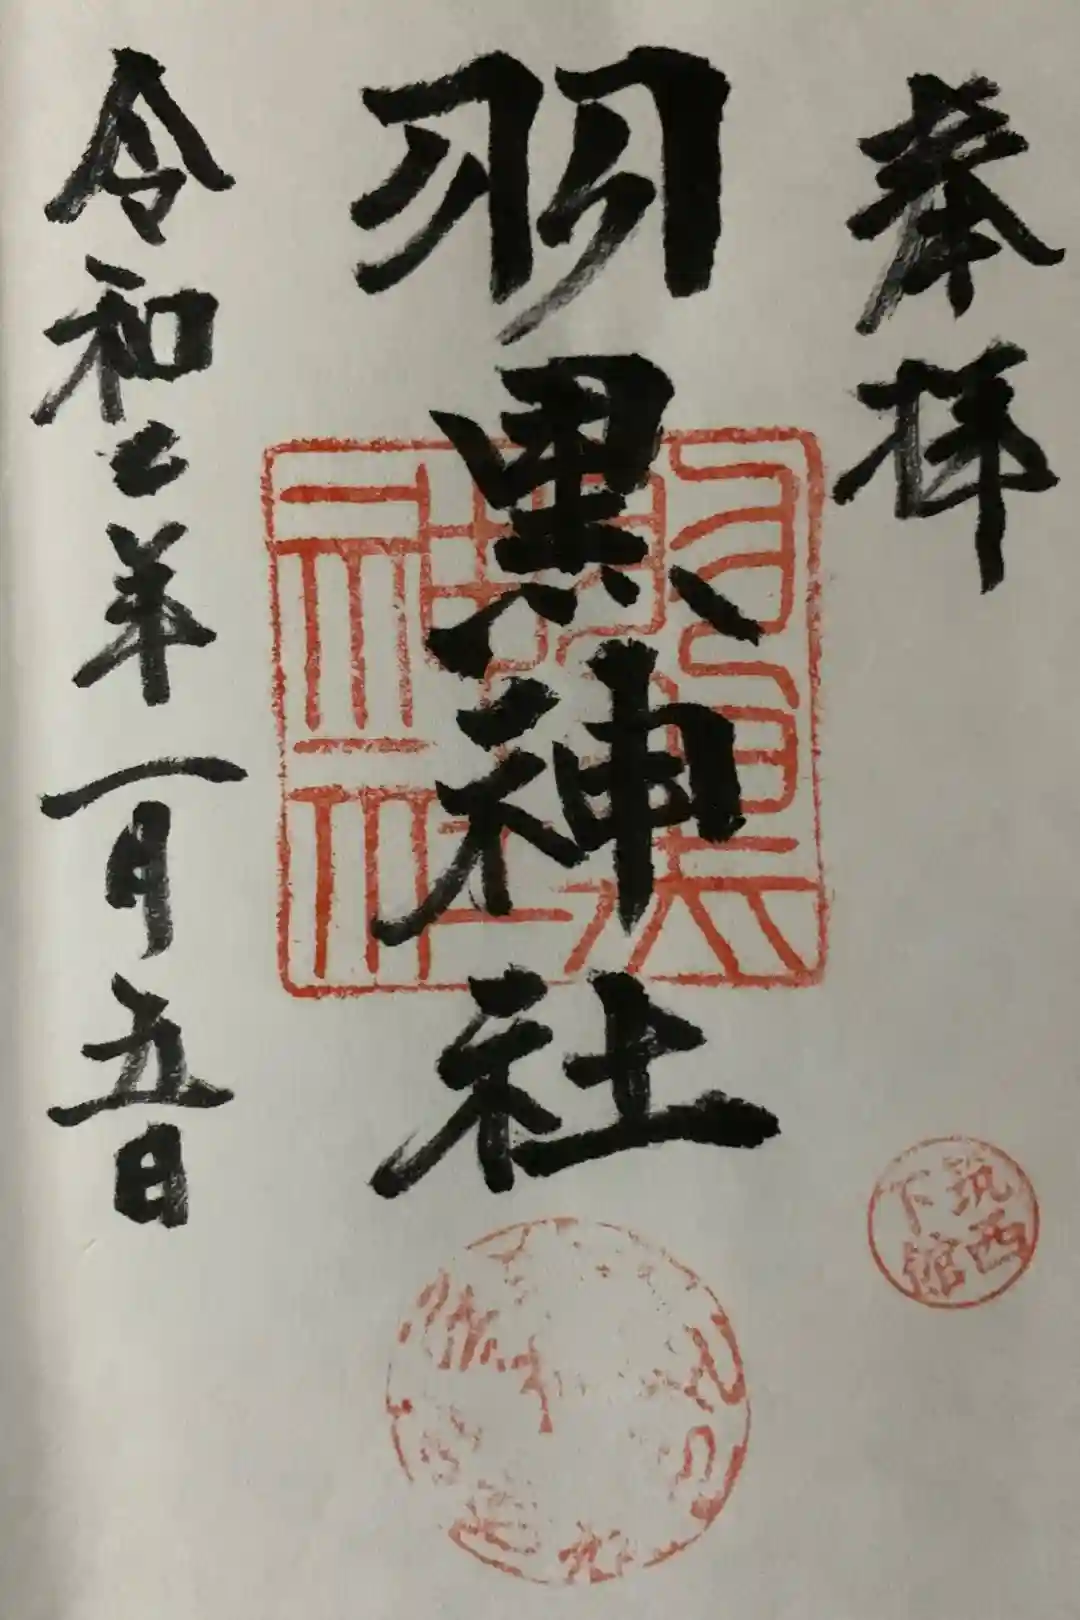 奉拝
羽黒神社
令和二年一月五日
筑西
下館
羽黒
神社